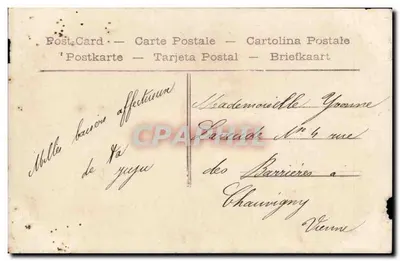 Post Card — Carte Postale — Cartolina Postale
Postkarte — Tarjeta Postal — Briefkaart
Milles baisers affectueux
de ta
juju
Mademoiselle Yvonne
No 4 rue
des Barrières à
Chauvigny
Vienne
CPAPHIL